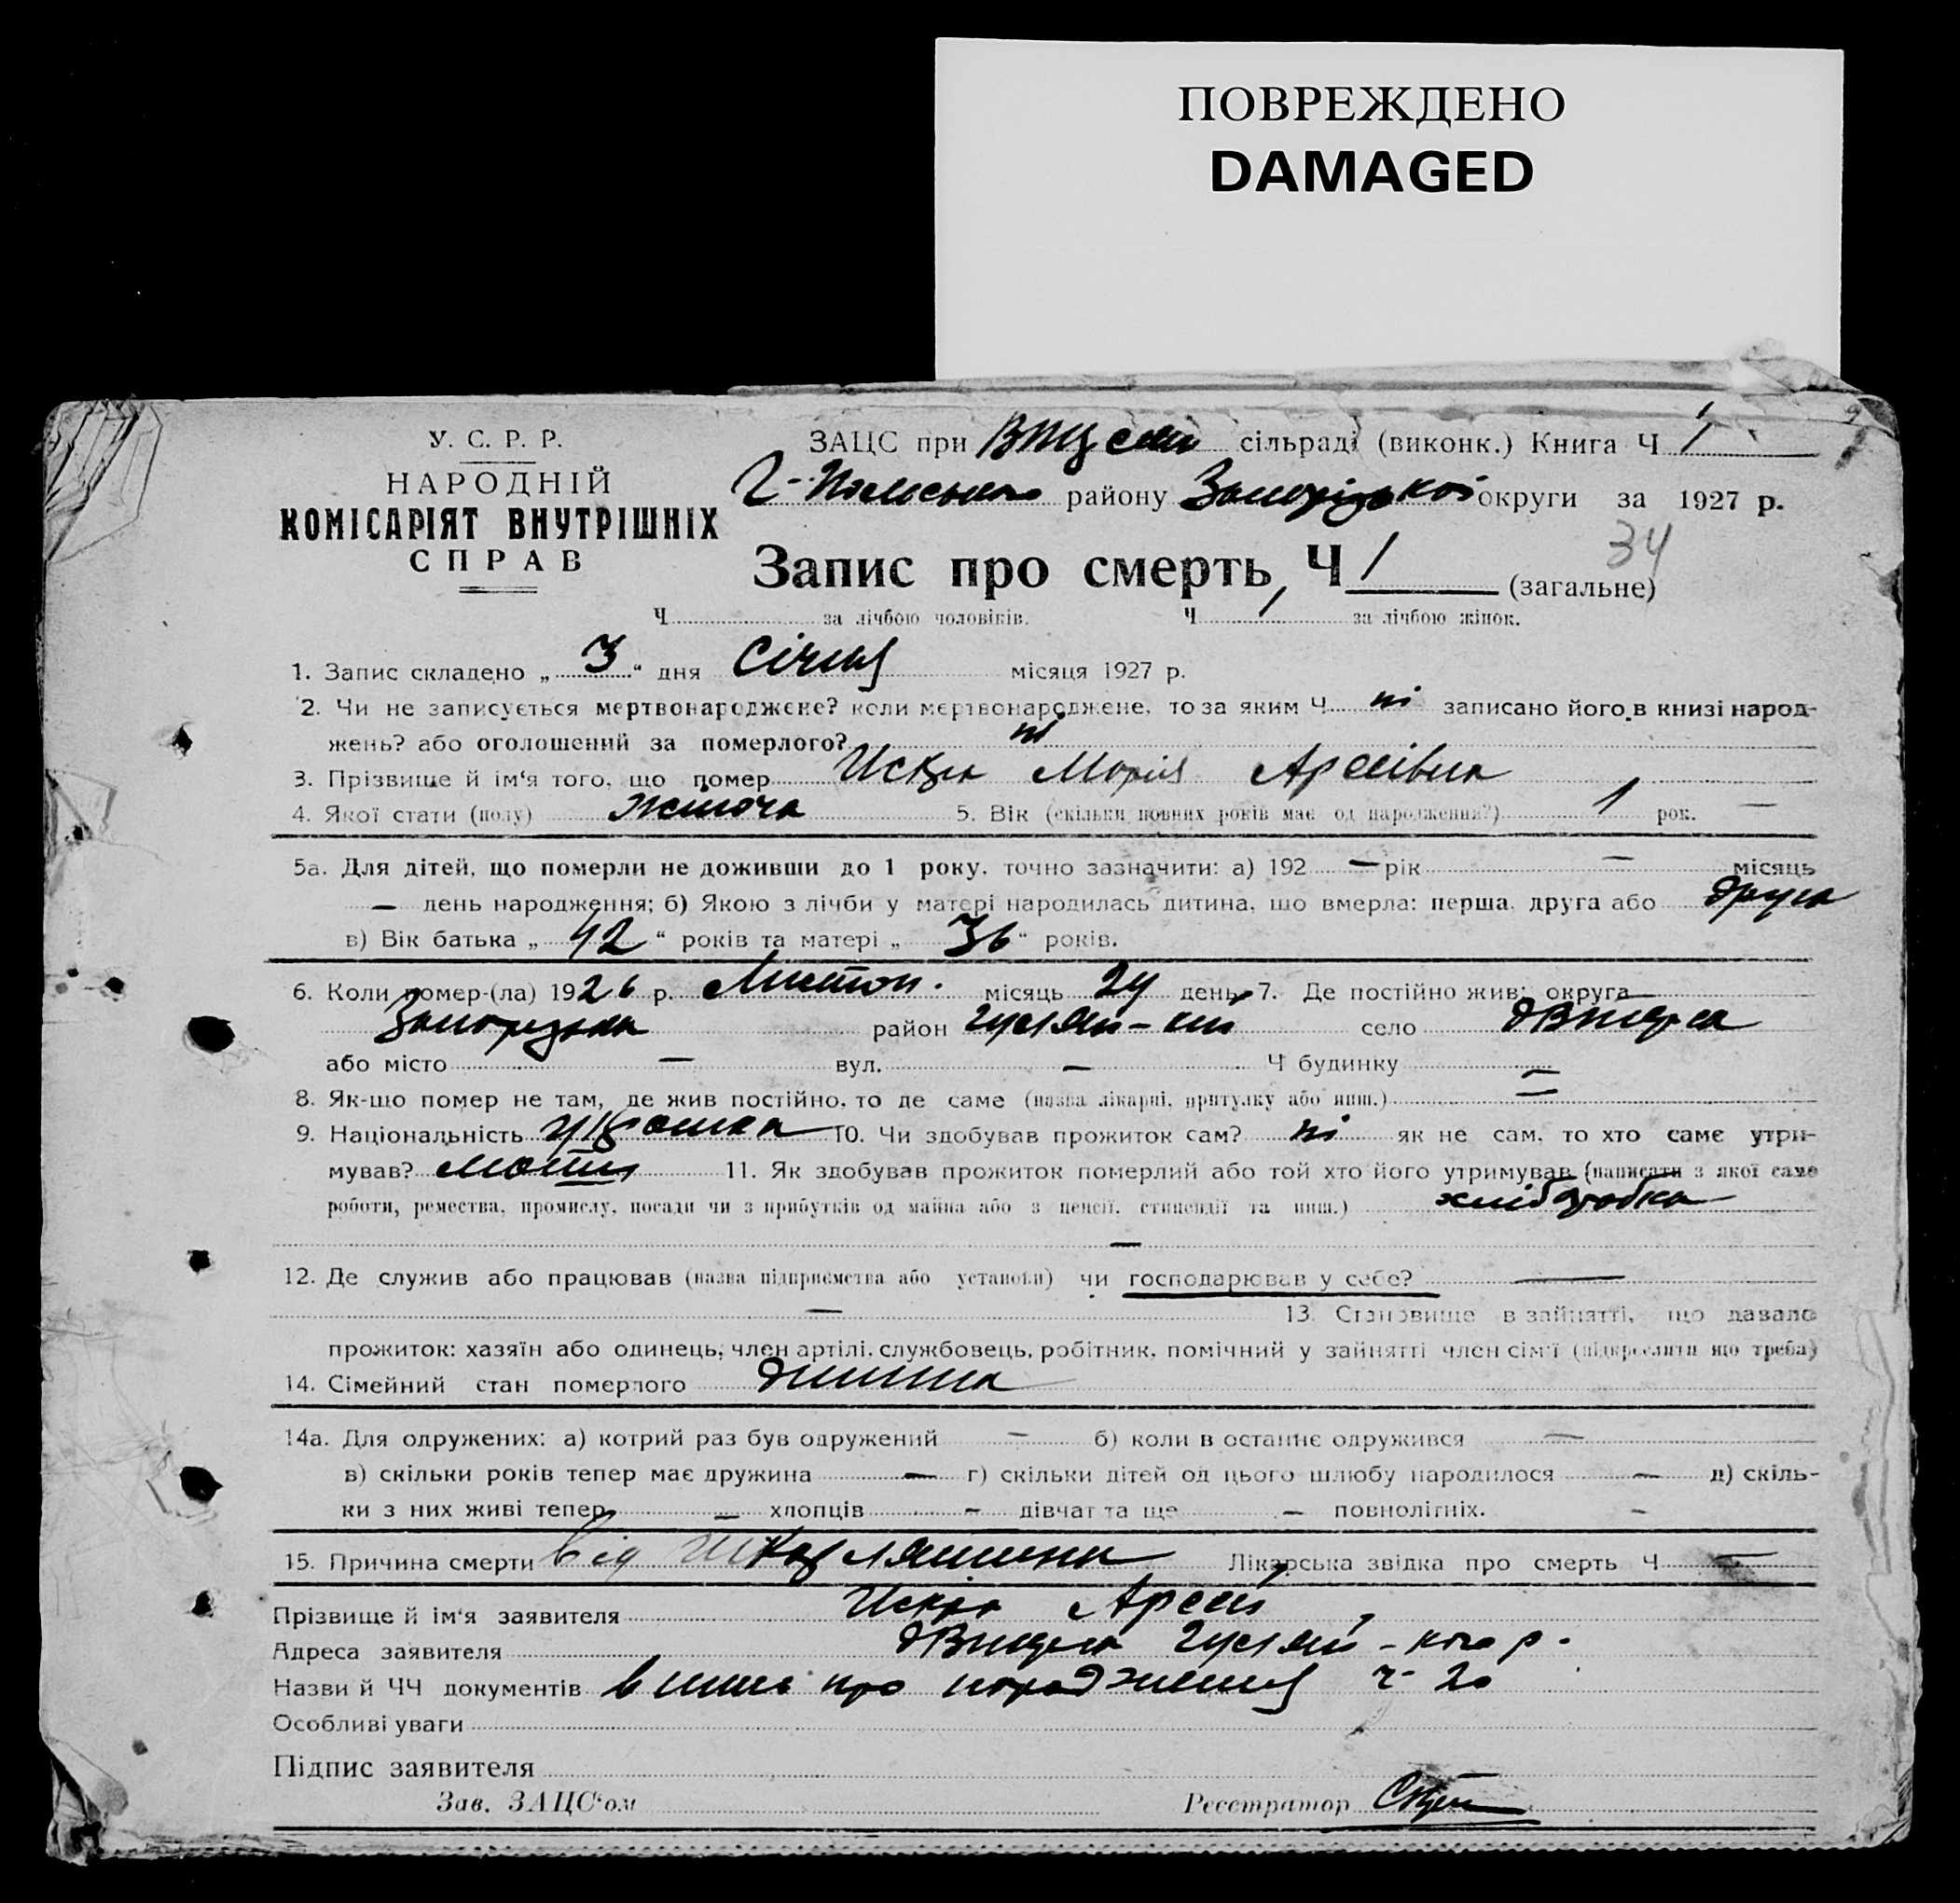 ПОВРЕЖДЕНО
DAMAGED
У. С. Р. Р.
НАРОДНІЙ
КОМІСАРІЯТ ВНУТРІШНІХ
СПРАВ
ЗАЦС при сільраді (виконк.) Книга Ч 1
району Запорізької округи за 1927 р.
34
Запис про смерть Ч 1 (загальне)
Ч за лічбою чоловіків. Ч 1 за лічбою жінок.
1. Запис складено „ 3 " дня Січня місяця 1927 р.
2. Чи не записується мертвонароджене? коли мертвонароджене, то за яким Ч ні записано його в книзі народ-
жень? або оголошений за померлого? ні
3. Прізвище й ім'я того, що помер Искра Марія Арсеівна
4. Якої стати (полу) жіноча 5. Вік (скільки повних років має од народження?) 1 рок. —
5а. Для дітей, що померли не доживши до 1 року, точно зазначити: а) 192 — рік — місяць
— день народження; б) Якою з лічби у матері народилась дитина, що вмерла: перша, друга або друга
в) Вік батька „ 42 " років та матері „ 36 " років.
6. Коли помер-(ла) 1926 р. Листоп. місяць 24 день 7. Де постійно жив: округа
Запорізька район село
або місто — вул. — Ч будинку —
8. Як-що помер не там, де жив постійно, то де саме (назва лікарні, притулку або инш.) —
9. Національність 10. Чи здобував прожиток сам? ні як не сам, то хто саме утри-
мував? 11. Як здобував прожиток померлий або той хто його утримував (написати з якої саме
роботи, ремества, промислу, посади чи з прибутків од майна або з пенсії, стипендії та инш.) хліборобка
—
12. Де служив або працював (назва підприємства або установи) чи господарював у себе? —
— 13. Становище в зайнятті, що давало
прожиток: хазяїн або одинець, член артілі, службовець, робітник, помічний у зайнятті член сім'ї (підкреслити що треба)
14. Сімейний стан померлого дитина
14а. Для одружених: а) котрий раз був одружений — б) коли в останнє одружився —
в) скільки років тепер має дружина — г) скільки дітей од цього шлюбу народилося — д) скіль-
ки з них живі тепер — хлопців — дівчат та ще — повнолітніх. —
15. Причина смерти від Лікарська звідка про смерть Ч —
Прізвище й ім'я заявителя Искра Арсей
Адреса заявителя
Назви й ЧЧ документів про народження ч 20
Особливі уваги
Підпис заявителя
Зав. ЗАЦС'ом Реєстратор